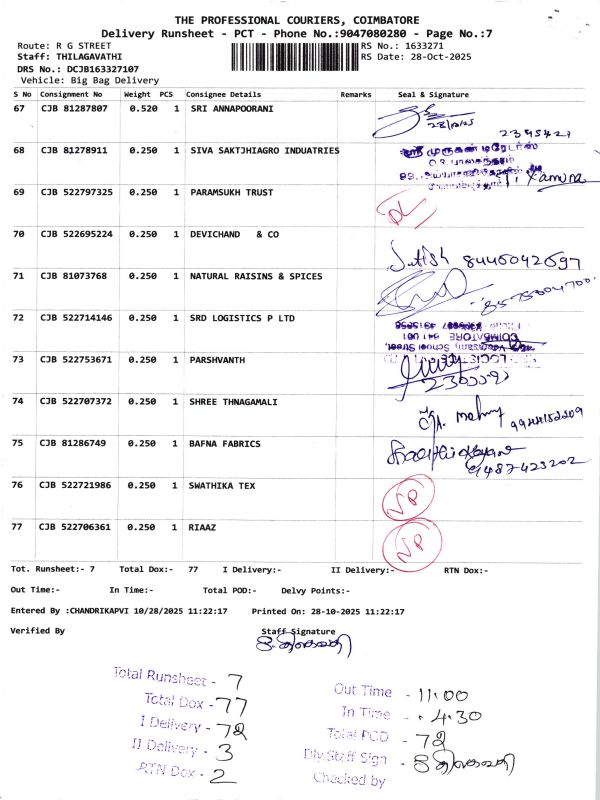 THE PROFESSIONAL COURIERS, COIMBATORE
Delivery Runsheet - PCT - Phone No.:9047080280 - Page No.:7
Route: R G STREET RS No.: 1633271
Staff: THILAGAVATHI RS Date: 28-Oct-2025
DRS No.: DCJB163327107
Vehicle: Big Bag Delivery
S No Consignment No Weight PCS Consignee Details Remarks Seal & Signature
67 CJB 81287807 0.520 1 SRI ANNAPOORANI
28/10/25
2395421
68 CJB 81278911 0.250 1 SIVA SAKTJHIAGRO INDUATRIES ஸ்ரீ முருகன் டிரேடர்ஸ்
69 CJB 522797325 0.250 1 PARAMSUKH TRUST DL
70 CJB 522695224 0.250 1 DEVICHAND & CO
Satish 8446042697
71 CJB 81073768 0.250 1 NATURAL RAISINS & SPICES
8575304700
72 CJB 522714146 0.250 1 SRD LOGISTICS P LTD
COIMBATORE 641 001
73 CJB 522753671 0.250 1 PARSHVANTH
74 CJB 522707372 0.250 1 SHREE THNAGAMALI
9944152209
75 CJB 81286749 0.250 1 BAFNA FABRICS
9487423202
76 CJB 522721986 0.250 1 SWATHIKA TEX NP
77 CJB 522706361 0.250 1 RIAAZ NP
Tot. Runsheet:- 7 Total Dox:- 77 I Delivery:- II Delivery:- RTN Dox:-
Out Time:- In Time:- Total POD:- Delvy Points:-
Entered By :CHANDRIKAPVI 10/28/2025 11:22:17 Printed On: 28-10-2025 11:22:17
Verified By Staff Signature
Total Runsheet - 7
Total Dox - 77
I Delivery - 72
II Delivery - 3
RTN Dox - 2
Out Time - 11:00
In Time - 4:30
Total POD - 72
Dly.Staff Sign -
Checked by